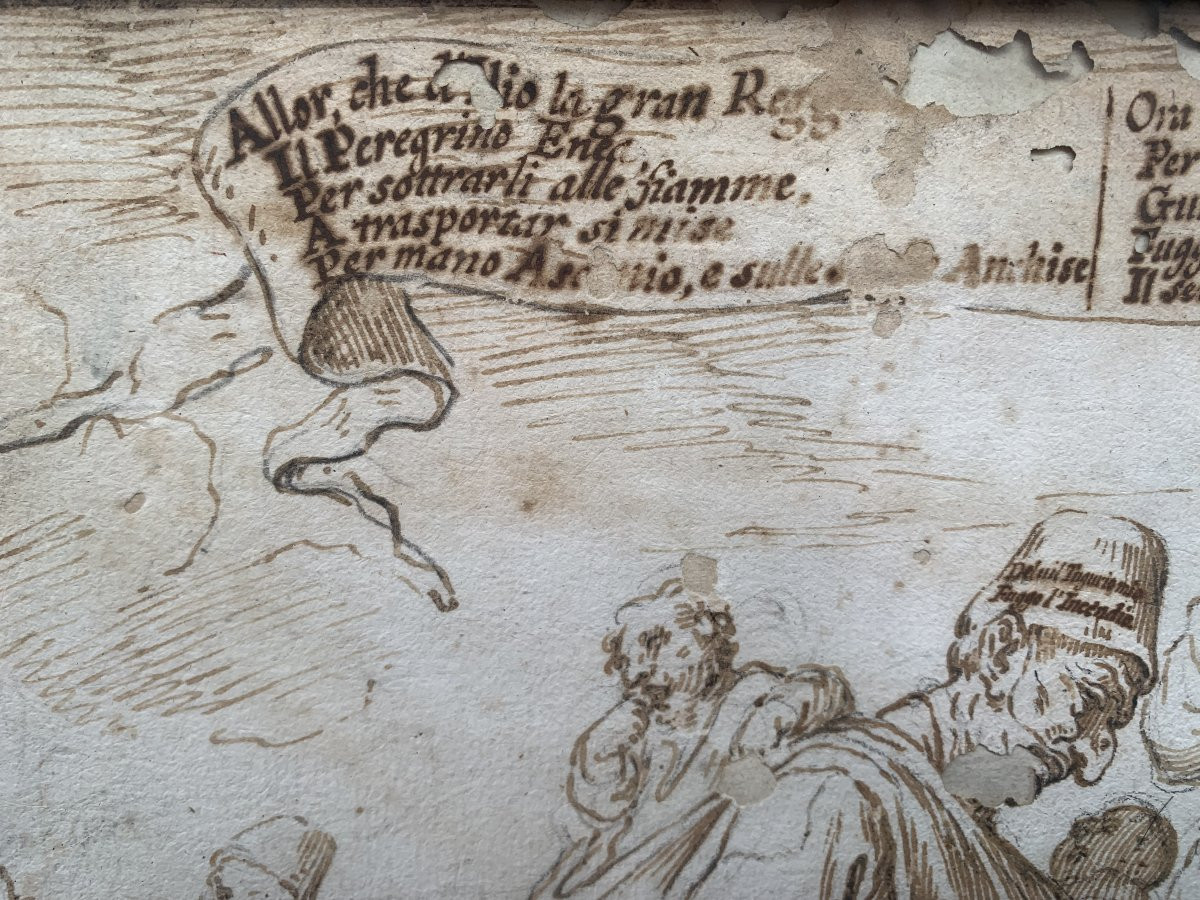 Allor, che d'Ilio la gran Regg
Il Peregrino Enea
Per sottrarli alle fiamme,
A trasportar si mise
Per mano Ascanio, e sulle Anchise
Ora
Per
Gui
Fugg
Il se
Fugge l'Incendio